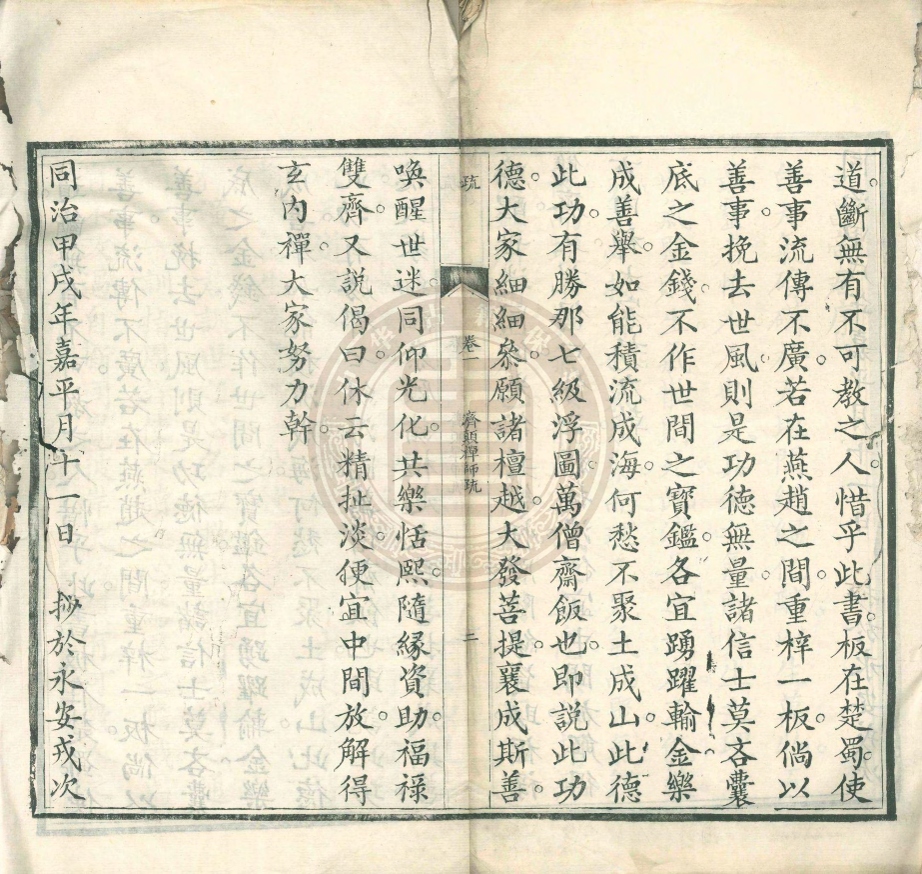 道斷無有不可教之人。惜乎此書板在楚蜀。使
善事流傳不廣。若在燕趙之間重梓一板。倘以
善事挽去世風。則是功德無量。諸信士莫吝囊
底之金錢。不作世間之寶鑑。各宜踴躍輸金。樂
成善舉。如能積流成海。何愁不聚土成山。此德
此功。有勝那七級浮圖。萬僧齋飯也。即說此功
德。大家細細叅。願諸檀越。大發菩提。襄成斯善。
疏 卷一 齊顛禪師疏 二
喚醒世迷。同仰光化。共樂恬熙。隨緣資助。福祿
雙齊。又說偈曰。休云精扯淡。便宜中間放。解得
玄內禪。大家努力幹。
同治甲戌年嘉平月十一日 抄於永安戎次